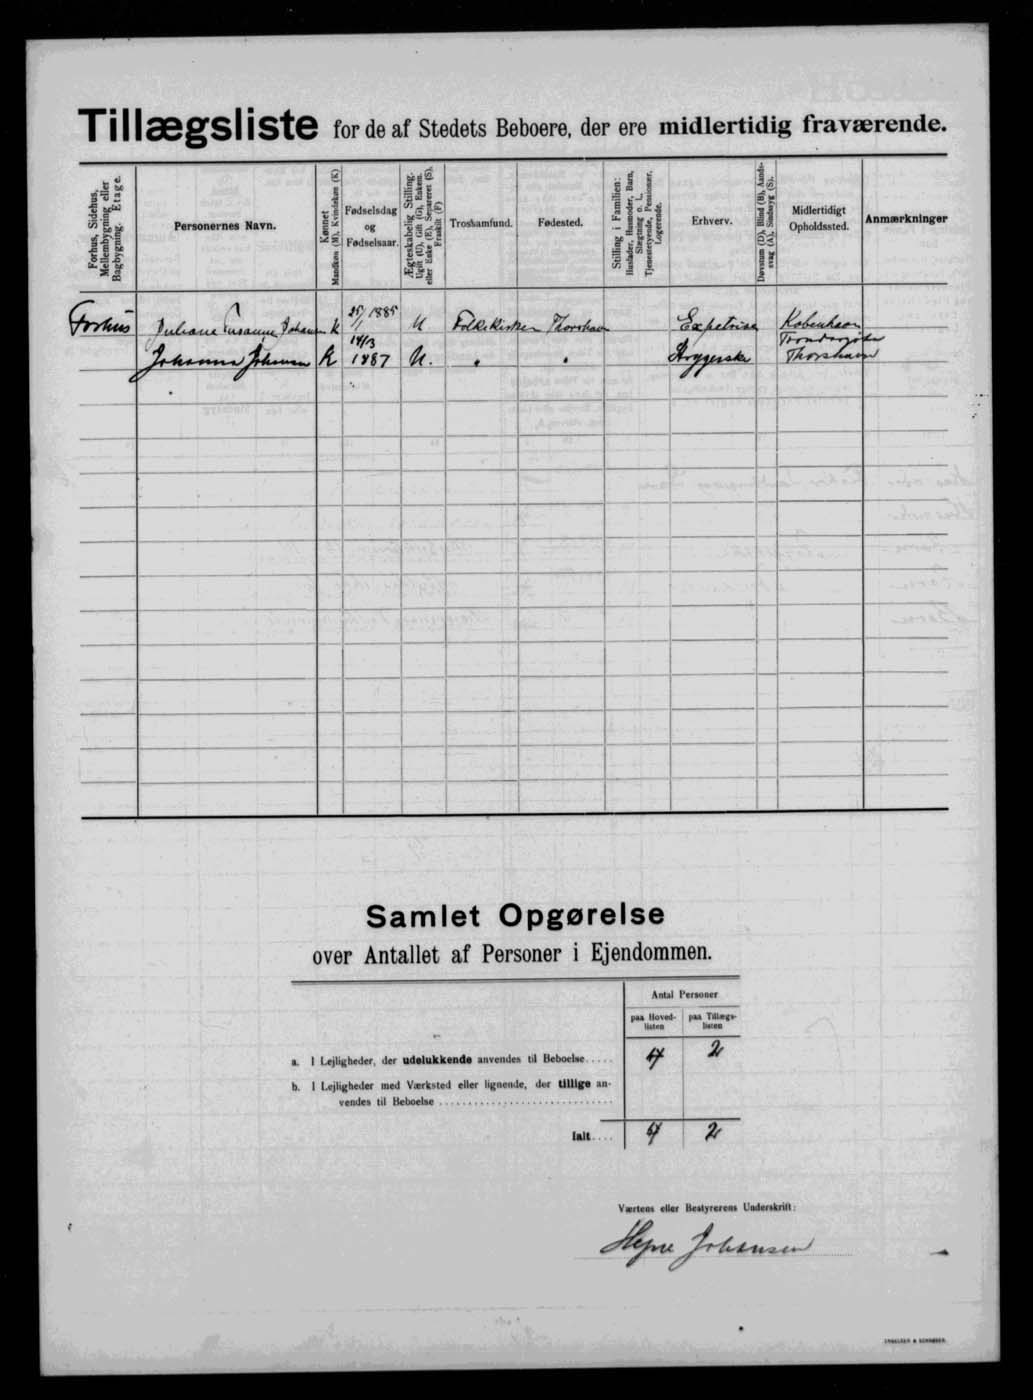 Tillægsliste for de af Stedets Beboere, der ere midlertidig fraværende.
Forhus, Sidehus, Mellembygning eller Bagbygning. Etage.
Personernes Navn.
Kønnet Mandkøn (M), Kvindekøn (K)
Fødselsdag og Fødselsaar.
Ægteskabelig Stilling. Ugift (U), Gift (G), Enkem. eller Enke (E), Separeret (S), Fraskilt (F)
Trossamfund.
Fødested.
Stilling i Familien: Husfader, Husmoder, Barn, Slægtning o. l., Tjenestetyende, Pensionær, Logerende.
Erhverv.
Døvstum (D), Blind (B), Aandssvag (A), Sindssyg (S).
Midlertidigt Opholdssted.
Anmærkninger
Forhus Juliane Susanne Johansen K 25/1 1885 U Folkekirken Thorshavn København
Johanna Johansen K 14/3 1887 U. " " Thorshavn
Samlet Opgørelse
over Antallet af Personer i Ejendommen.
Antal Personer
paa Hovedlisten
paa Tillægslisten
a. I Lejligheder, der udelukkende anvendes til Beboelse..... 2
b. I Lejligheder med Værksted eller lignende, der tillige anvendes til Beboelse
Ialt.... 2
Værtens eller Bestyrerens Underskrift:
Johansen